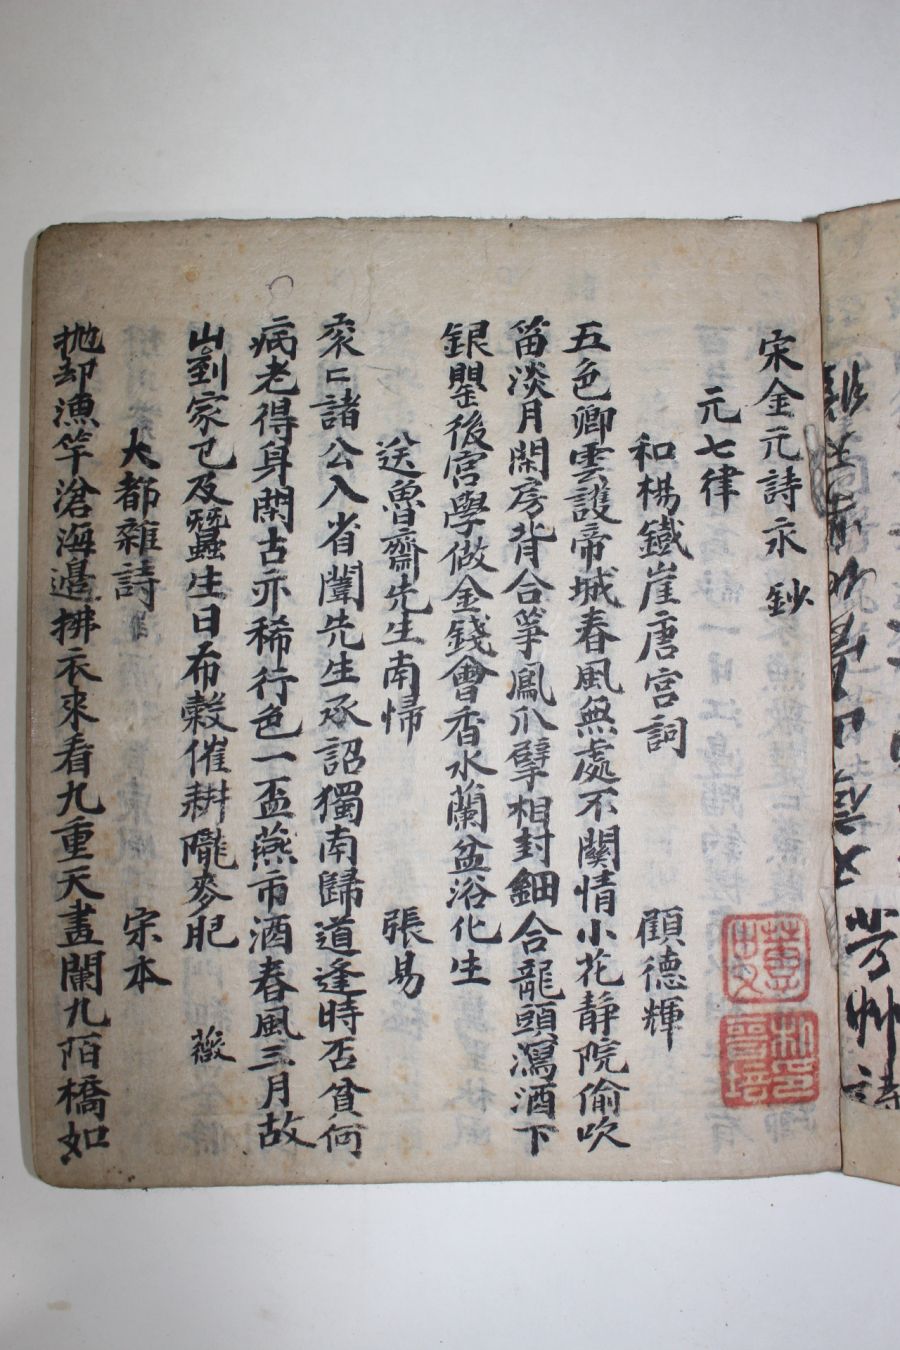 宋金元詩永 鈔
元七律
和楊鐵崖唐宮詞 顧德輝
五色卿雲護帝城春風無處不關情小花靜院偷吹
笛淡月閑房背合箏鳳爪擘相封鈿合龍頭瀉酒下
銀甖後宮學做金錢會香水蘭盆浴化生
送魯齋先生南歸 張易
衮〻諸公入省闈先生承詔獨南歸道逢時否貧何
病老得身閑古亦稀行色一盃燕市酒春風三月故
山薇到家已及蠶生日布穀催耕隴麥肥
大都雜詩 宋本
拋却漁竿滄海邊拂衣來看九重天晝闌九陌橋如